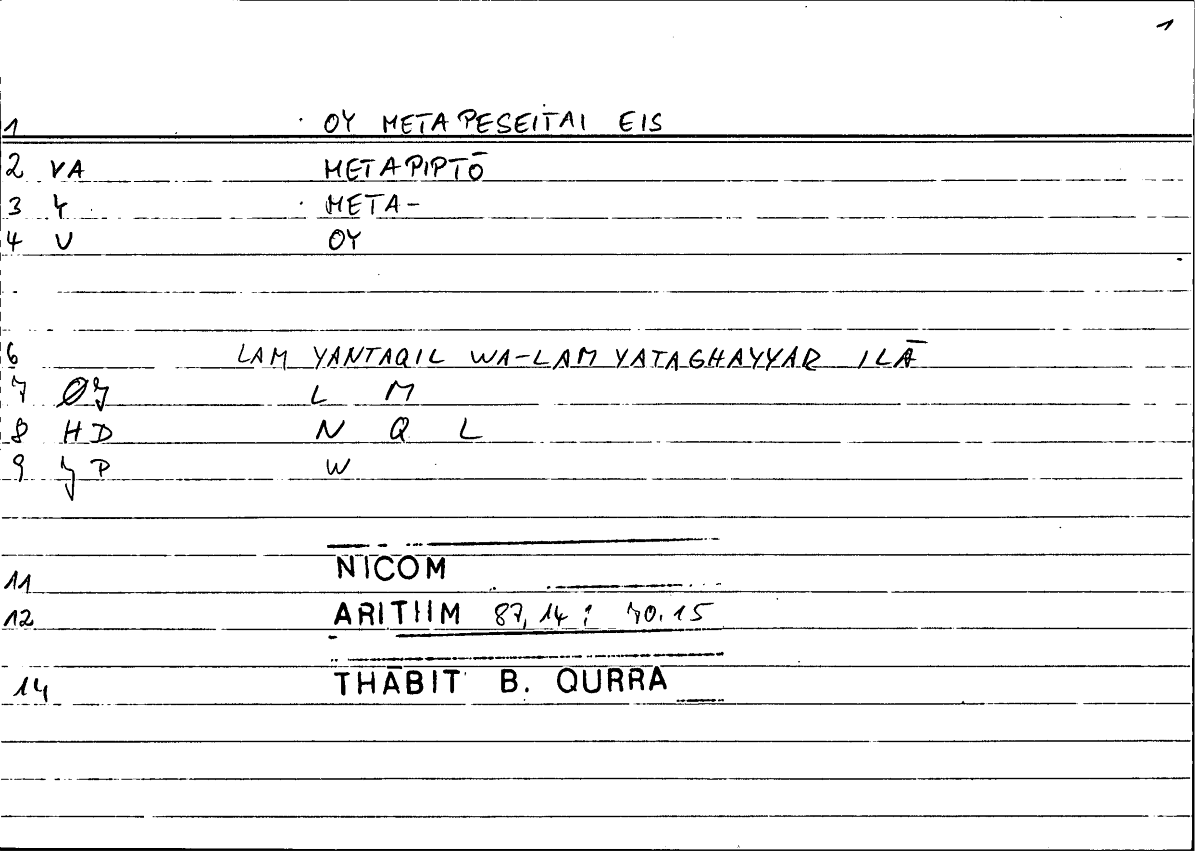 1
1 OY METAPESEITAI EIS
2 VA METAPIPTŌ
3 META-
4 V OY
6 LAM YANTAQIL WA-LAM YATAGHAYYAR ILĀ
7 L M
8 HD N Q L
9 W
11 NICOM
12 ARITHM 87, 14 ; 70. 15
14 THĀBIT B. QURRA